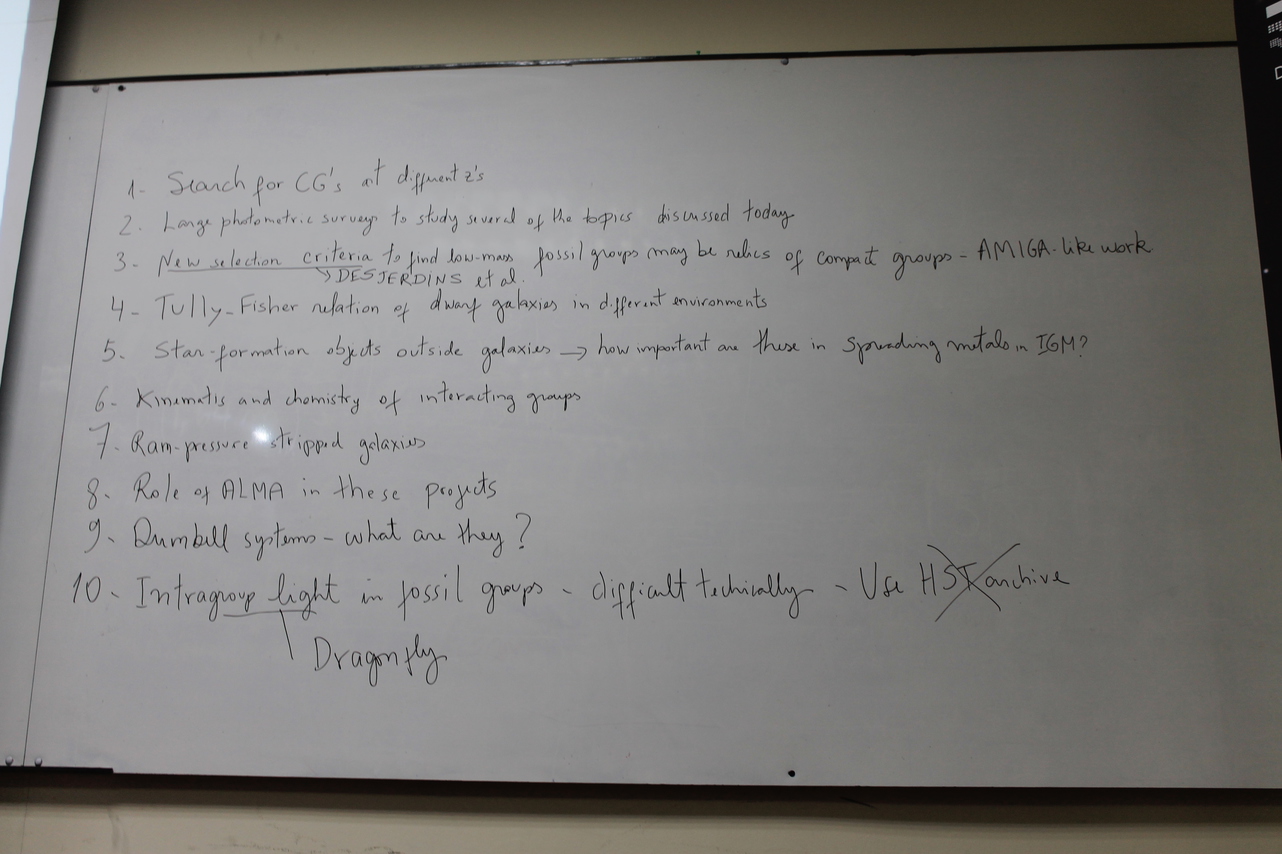 1- Search for CG's at different z's
2. Large photometric surveys to study several of the topics discussed today
3- New selection criteria to find low-mass fossil groups may be relics of compact groups - AMIGA-like work
↳ DESJERDINS et al.
4- Tully-Fisher relation of dwarf galaxies in different environments
5. Star-formation objects outside galaxies → how important are these in spreading metals in IGM?
6- Kinematis and chemistry of interacting groups
7. Ram-pressure stripped galaxies
8. Role of ALMA in these projects
9. Dumbell systems - what are they?
10. Intragroup light in fossil groups - difficult techically - Use HST archive
Dragonfly